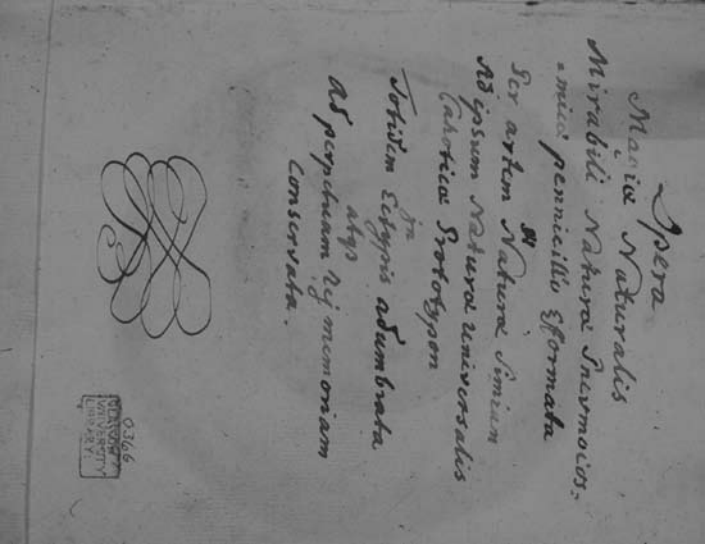 Opera
Magiæ Naturalis
Mirabili Naturæ Pneumocos=
=micæ pennicillio Efformata
et
Per artem Naturæ Simiam
Ad ipsum Naturæ universalis
Cahoticæ Prototypon
in
Totidem Ectypis adumbrata
atq3
Ad perpetuam rej memoriam
Conservata.
0366
UNIVERSITY
LIBRARY.